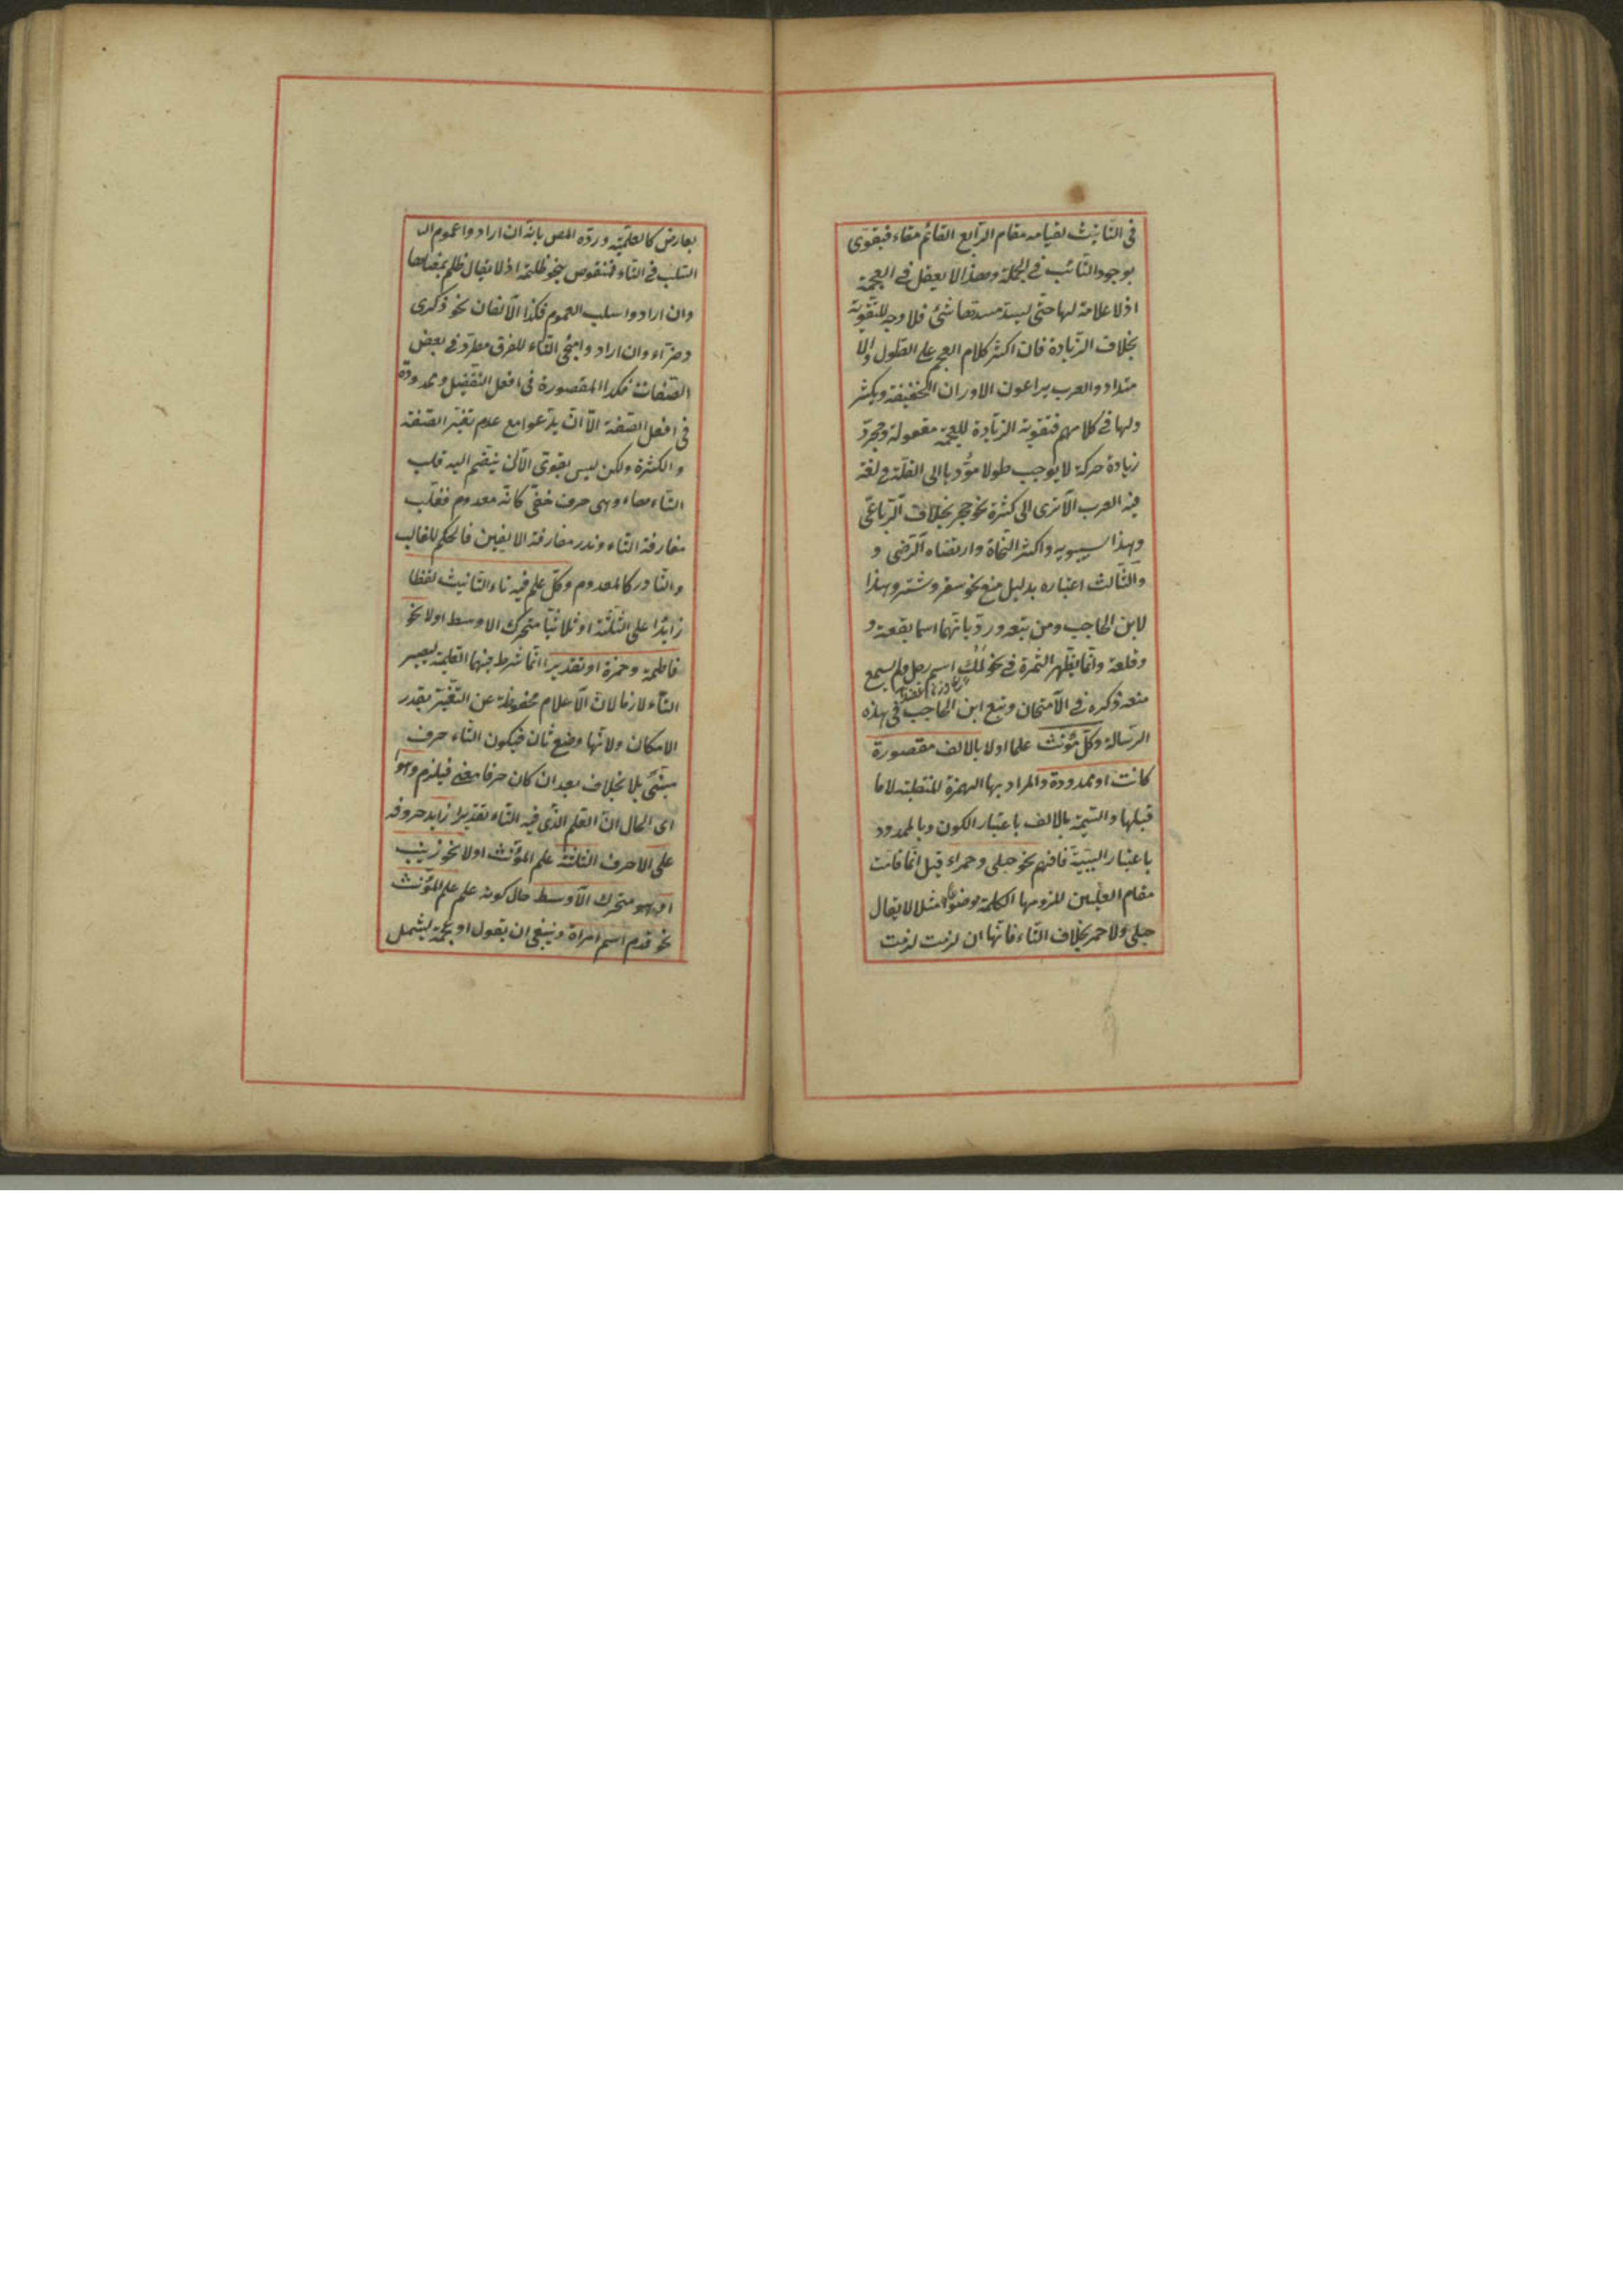 فى التانيث لقيامه مقام الرابع القائم مقاء فيقوى
بوجود النائب فى الجملة وهذا لا يعقل فى العجمة
اذ لا علامة لها حتى يسد مسدها شئ فلا وجه للتقوية
بخلاف الزيادة فان اكثر كلام العجم على الطول والا
متداد والعرب يراعون الاوزان الخفيفة ويكثر
ولها فى كلامهم فتقوية الزيادة للعجمة مقبولة ومجرد
زيادة حركة لا يوجب طولا مؤديا الى الثقل فى لغة
العرب الا ترى الى كثرة نحو حجر بخلاف الرباعى
وبهذا سيبويه واكثر النحاة وارتضاه الرضى و
والثالث اعتباره بدليل منع نحو سقر وشتر وبهذا
لابن الحاجب ومن تبعه ورد بانهما اسما بقعة و
وقلعة وانما يظهر الثمرة فى نحو لمك اسم رجل ولم يسمع
منعه ذكره فى الامتحان وتبع ابن الحاجب فى هذه
الرسالة وكل مؤنث علما اولا بالالف مقصورة
كانت او ممدودة والمراد بها الهمزة المنقلبة لا ما
قبلها والتسمية بالالف باعتبار الكون وبالممدود
باعتبار السببية فافهم نحو حبلى وحمراء قيل انما قامت
مقام العلتين للزومها الكلمة وضعا مثلا لا يقال
حبلى ولا حمر بخلاف التاء فانها ان لزمت لزمت
بعارض كالعلمية ورده المص بانه ان ارادوا عموم الـ
السلب فى التاء فمنقوض بنحو ظلمة اذ لا يقال ظلم
وان ارادوا سلب العموم فكذا الالفان نحو ذكرى
وضراء وان ارادوا مجئ التاء للفرق مطرد فى بعض
الصفات فكذا المقصورة فى افعل التفضيل وممدودة
فى افعل الصفة الا ان يدعوا مع عدم تغير الصفة
والكثرة ولكن ليس بقوى الا ان ينضم اليه قلب
التاء هاء وهى حرف خفى كانه معدوم فغلب
مفارقة التاء وندر مفارقة الالفين فالحكم للغالب
والنادر كالمعدوم وكل علم فيه تاء التانيث لفظا
زايدا على الثلثة او ثلاثيا متحرك الاوسط اولا نحو
فاطمة وحمزة او تقديرا انما شرط فيها العلمية ليصير
التاء لازما لان الاعلام محفوظة عن التغير بقدر
الامكان ولانها وضع ثان فيكون التاء حرف
مبنى بلا خلاف بعد ان كان حرفا معنى فيلزم وهو
اى الحال ان العلم الذى فيه التاء تقديرا زايد حروفه
على الاحرف الثلثة علم المؤنث اولا نحو زينب
او هو متحرك الاوسط حال كونه علم علم المؤنث
نحو قدم اسم امراة وينبغى ان يقول او عجمة ليشمل